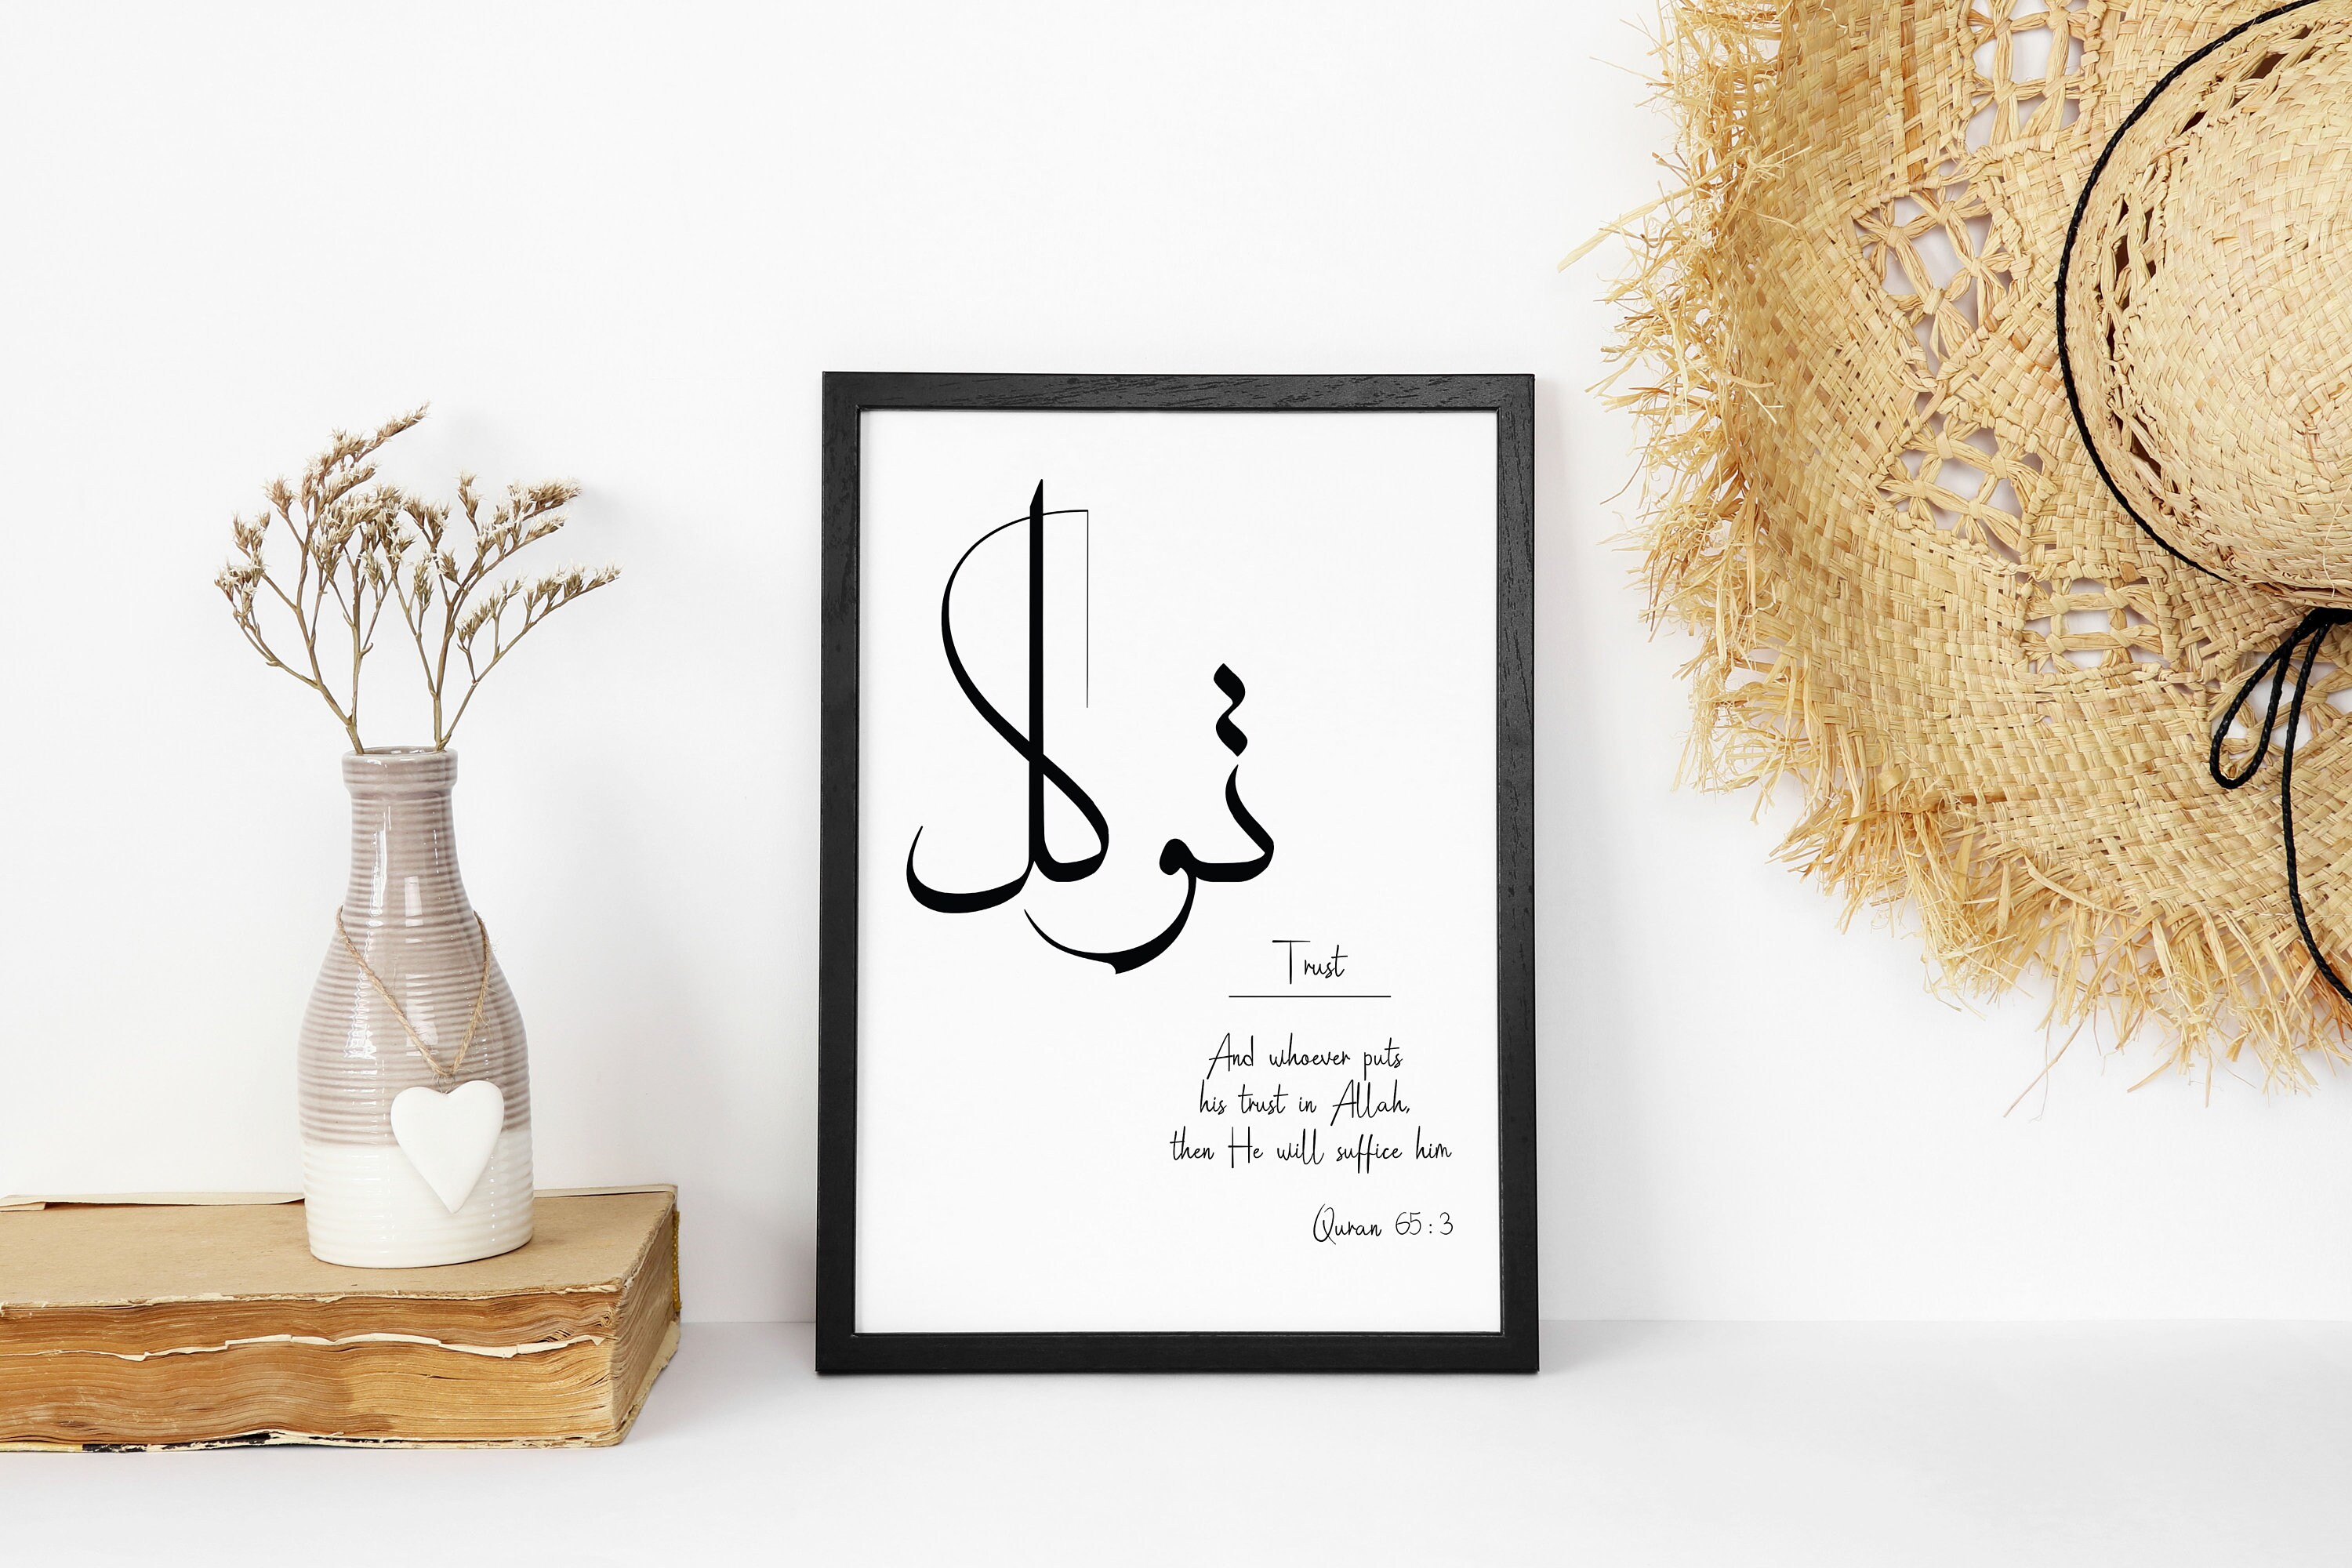 توكل
Trust
And whoever puts
his trust in Allah,
then He will suffice him
Quran 65:3